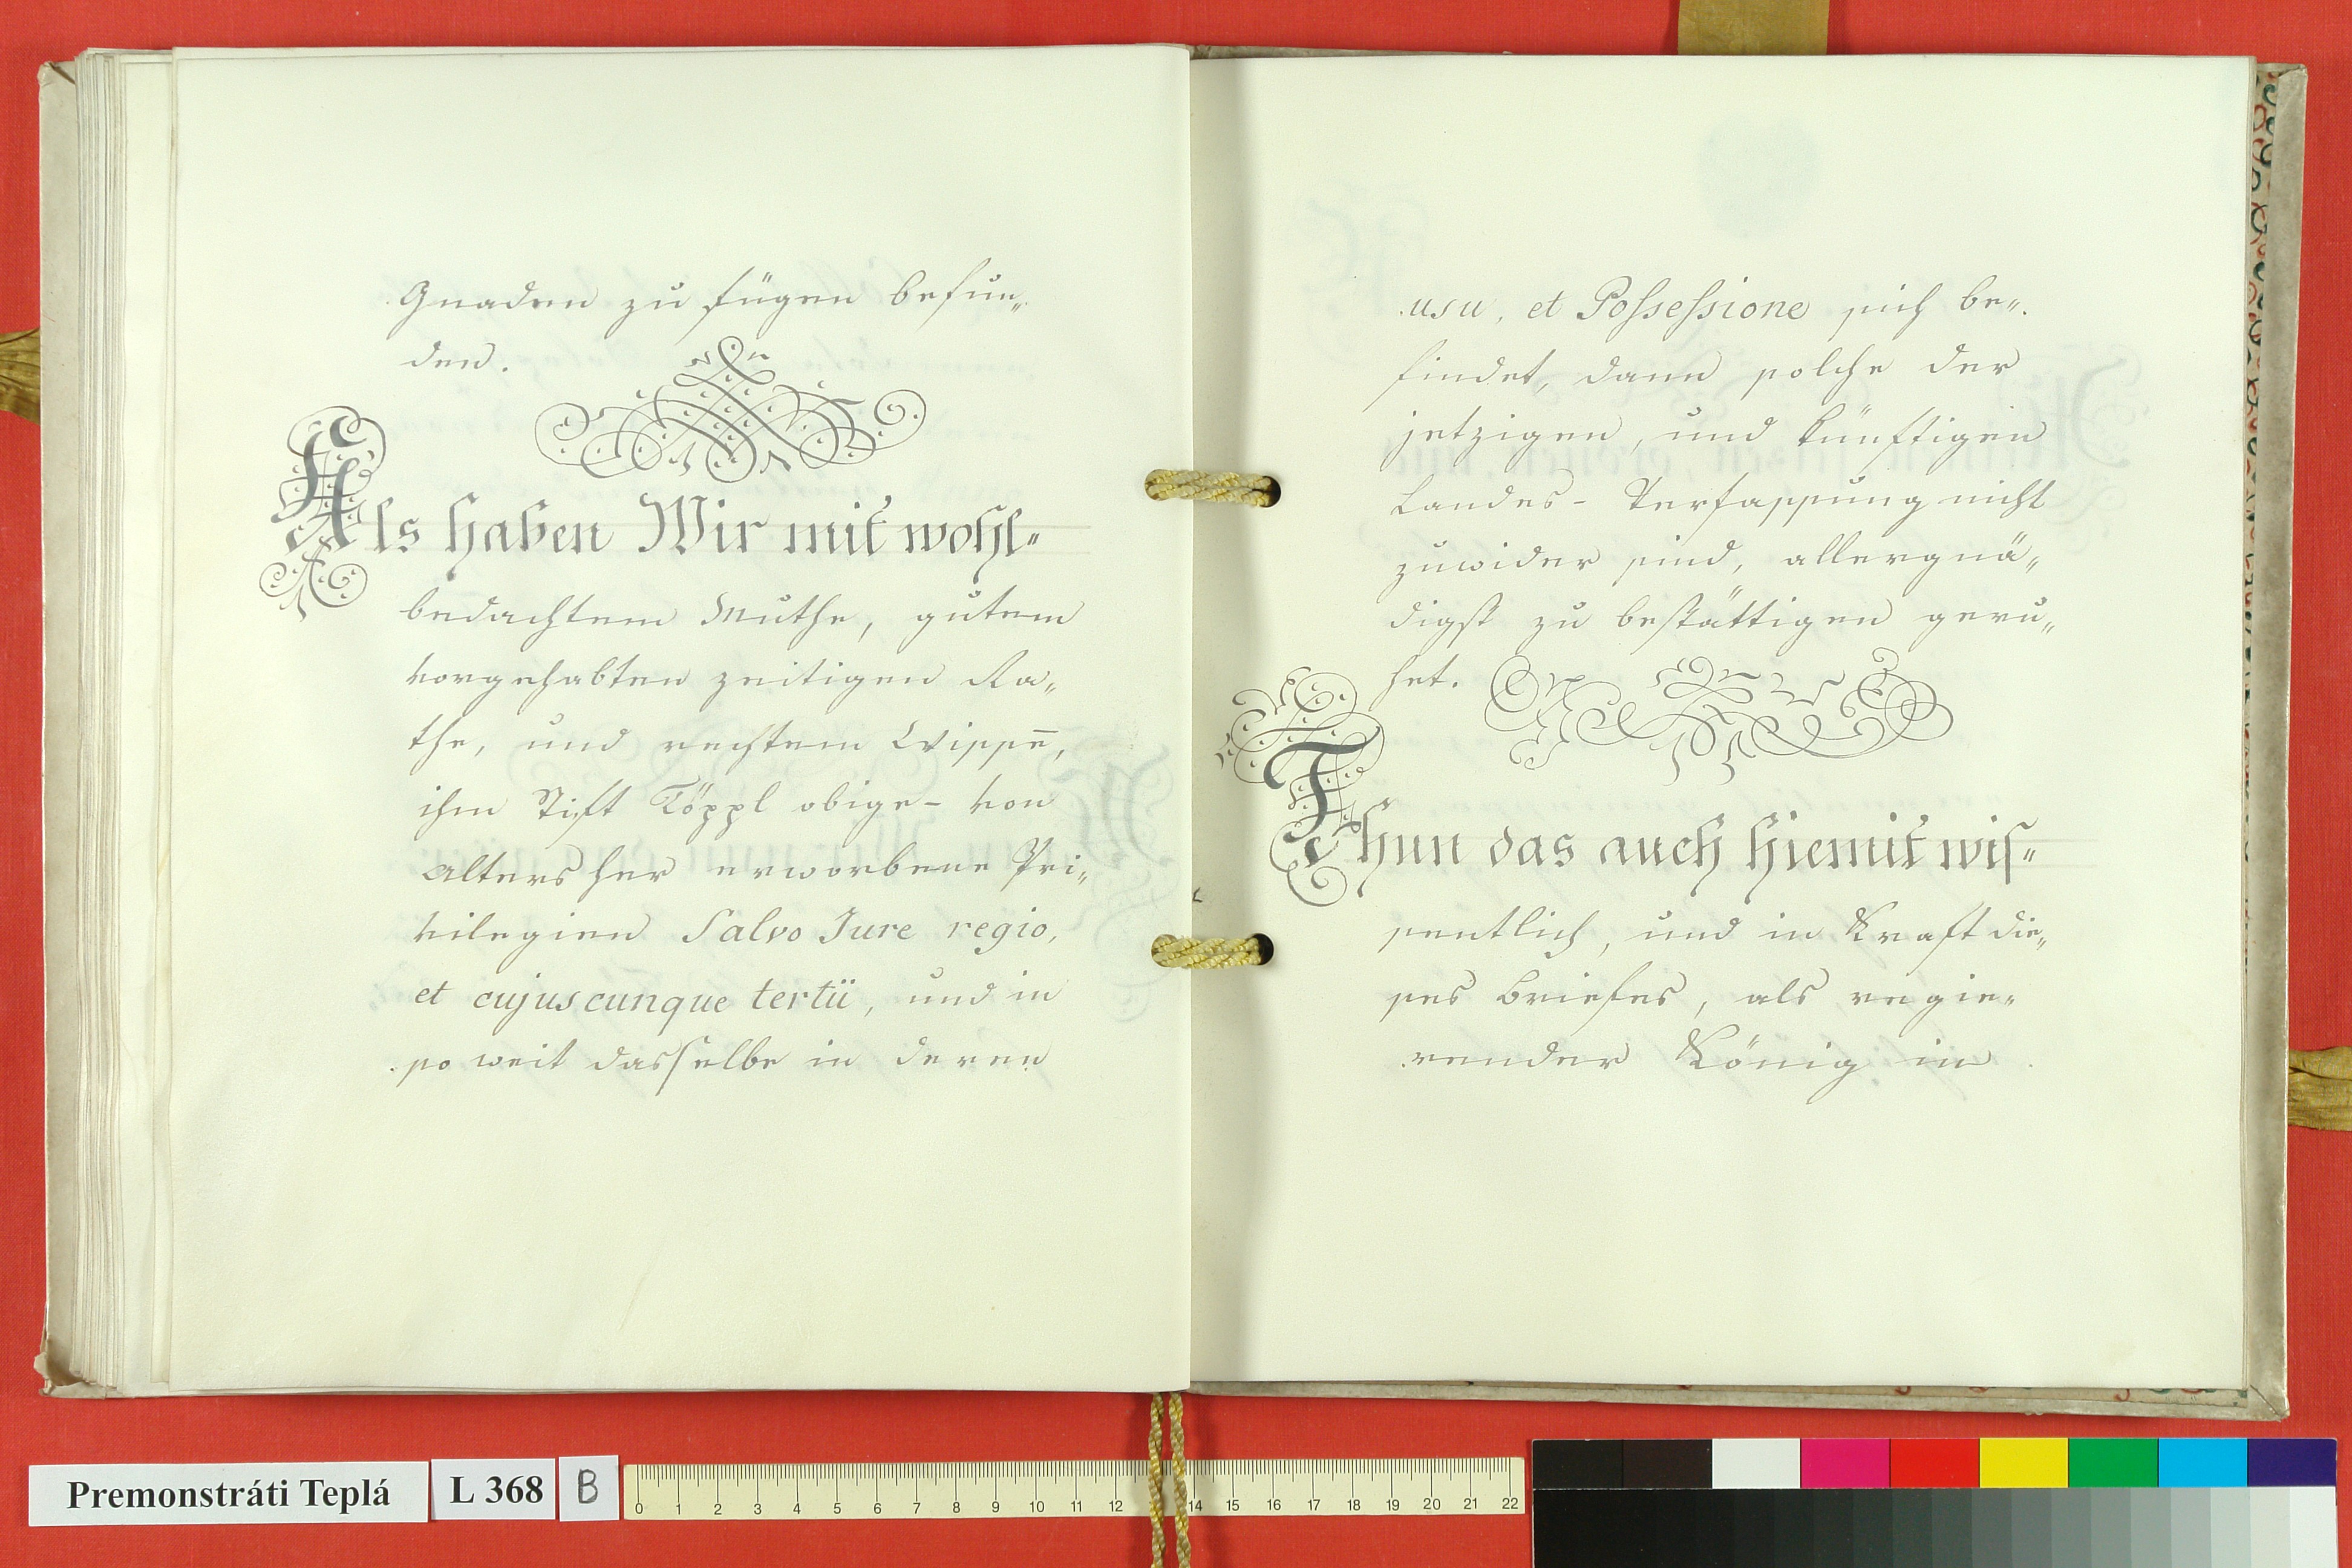 Gnaden zu fügen befun„
den.
Als haben Wir mit wohl„
bedachtem Muthe, gutem
vorgehabten zeitigen Ra„
the, und rechtem Wissen̅,
ihm Stift Töppl obige- von
Alters her erworbene Pri„
vilegien Salvo Jure regio,
et cujuscunque tertii, und in
so weit dasselbe in deren
usu, et Possessione sich be„
findet, dann solche der
jetzigen, und künftigen
Landes- Verfassung nicht
zuwider sind, allergnä„
digst zu bestättigen geru„
het.
Thun das auch hiemit wis„
sentlich, und in Kraft die„
ses Briefes, als regie„
render König in
Premonstráti Teplá L 368 B
0 1 2 3 4 5 6 7 8 9 10 11 12 14 15 16 17 18 19 20 21 22